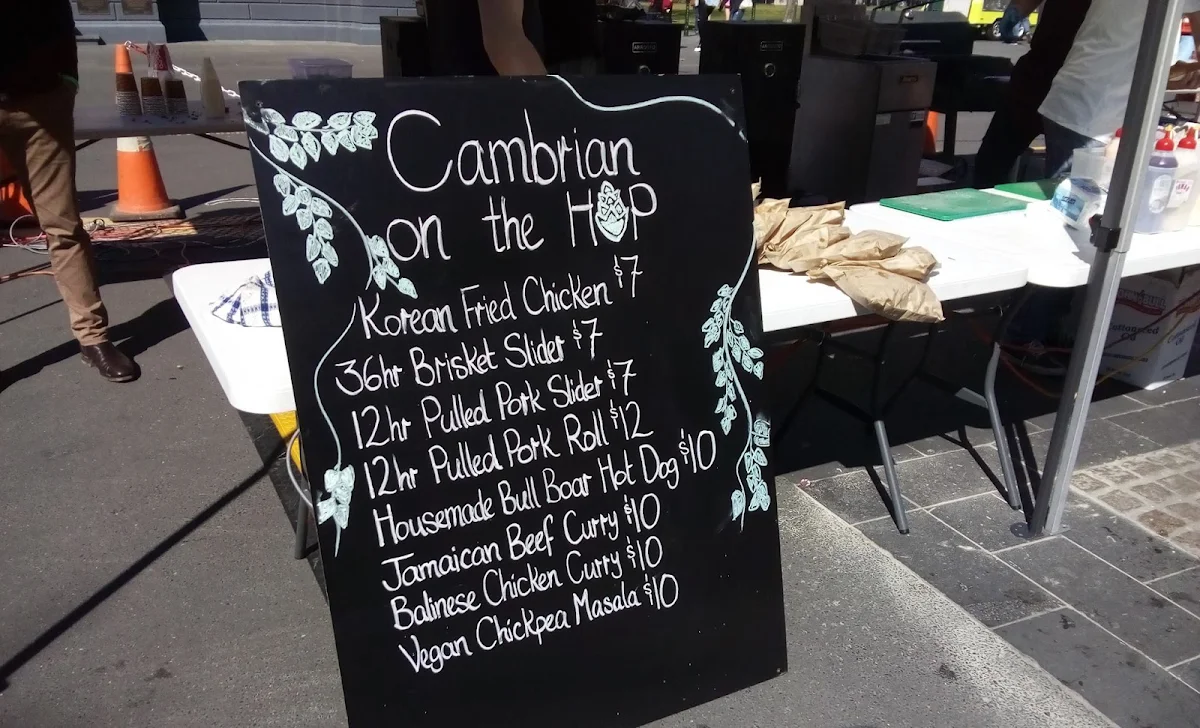 Cambrian
on the HOP
Korean Fried Chicken $7
36hr Brisket Slider $7
12hr Pulled Pork Slider $7
12hr Pulled Pork Roll $12
Housemade Bull Boar Hot Dog $10
Jamaican Beef Curry $10
Balinese Chicken Curry $10
Vegan Chickpea Masala $10